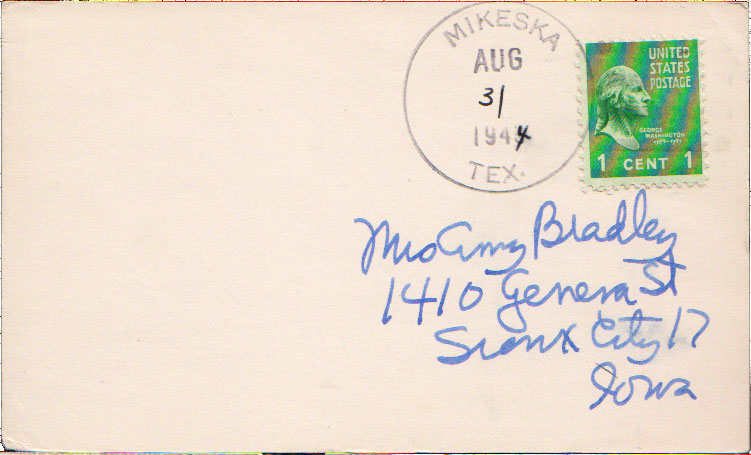 MIKESKA
AUG
31
1944
TEX.
UNITED
STATES
POSTAGE
GEORGE
WASHINGTON
1789-1797
1 CENT 1
Mrs Amy Bradley
1410 Geneva St
Sioux City 17
Iowa